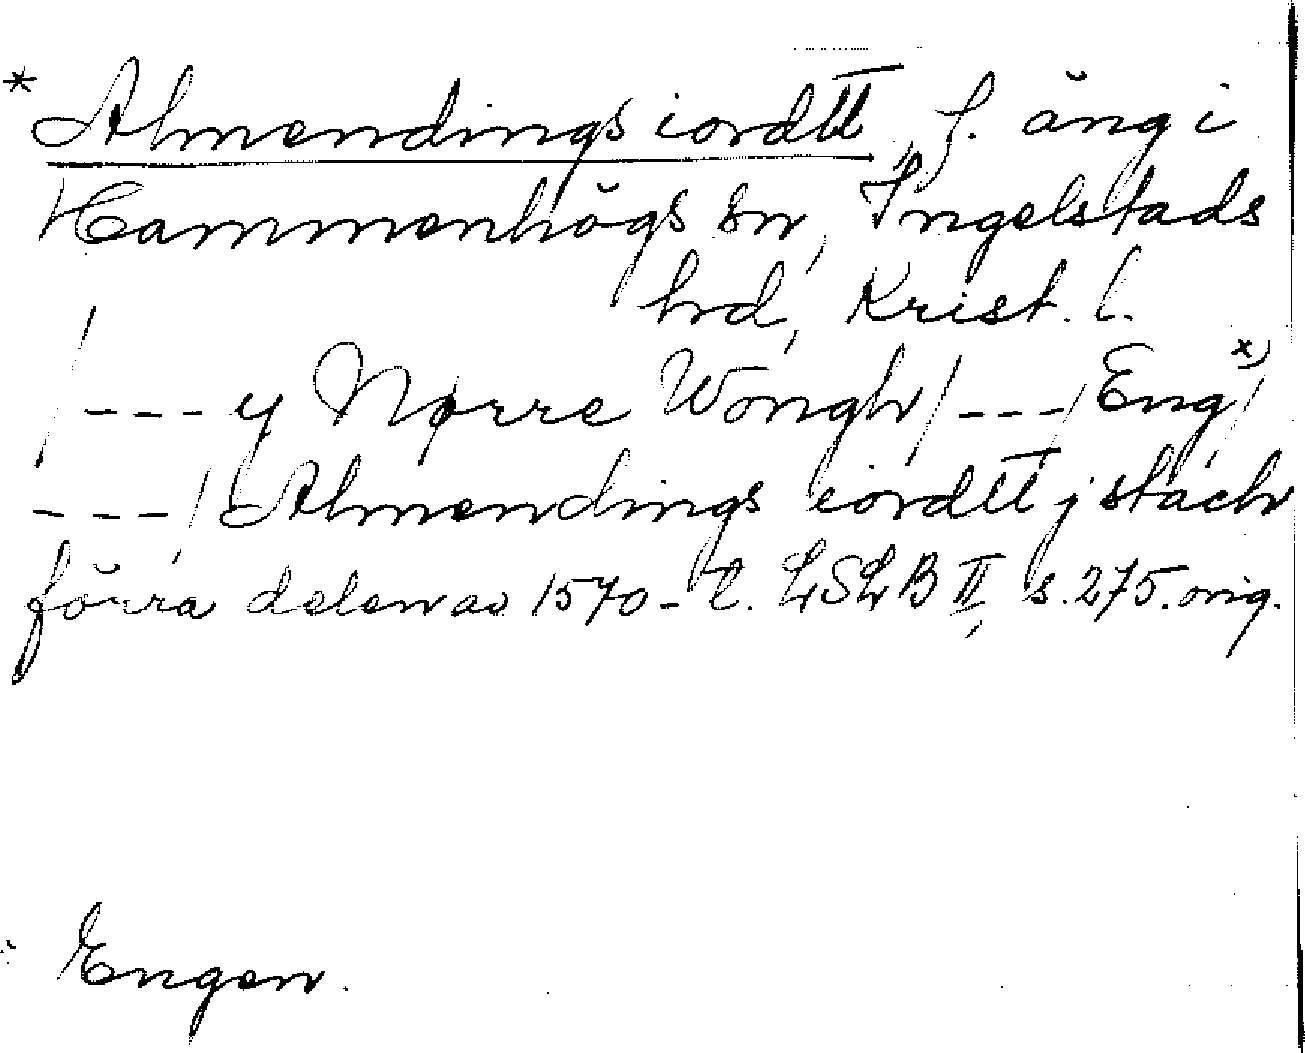 * Almendings iordtt, f. äng i
Hammenhögs sn, Ingelstads
hrd, Krist. l.
/--- y Nørre Wongh/---/Eng x)/
---/Almendings iordtt j stæch
förra delen av 1570-t. LSLB II, s. 275. orig.
Engen.